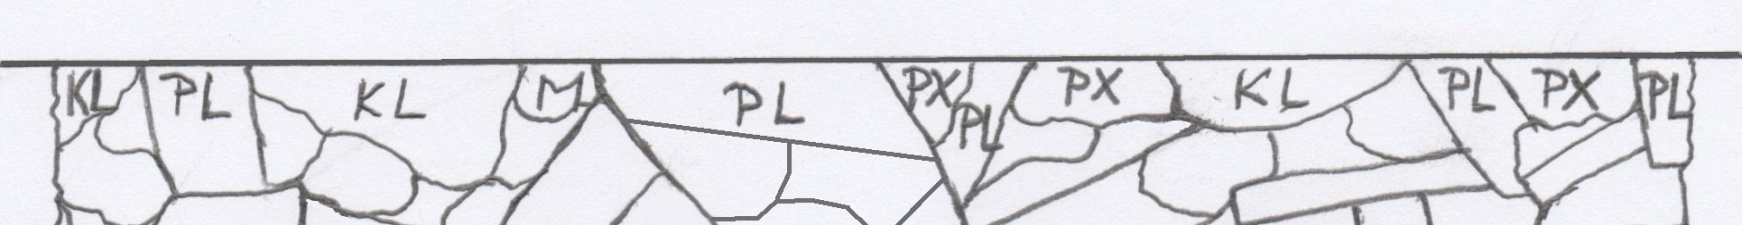 KL PL KL M PL PX PL PX KL PL PX PL